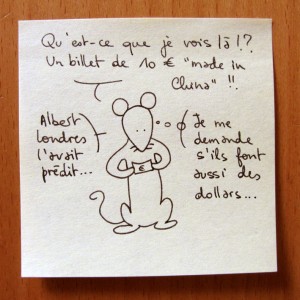 Qu'est-ce que je vois là !?
Un billet de 10 € "made in
China" !!
Albert
Londres
l'avait
prédit...
Je me
demande
s'ils font
aussi des
dollars...
€